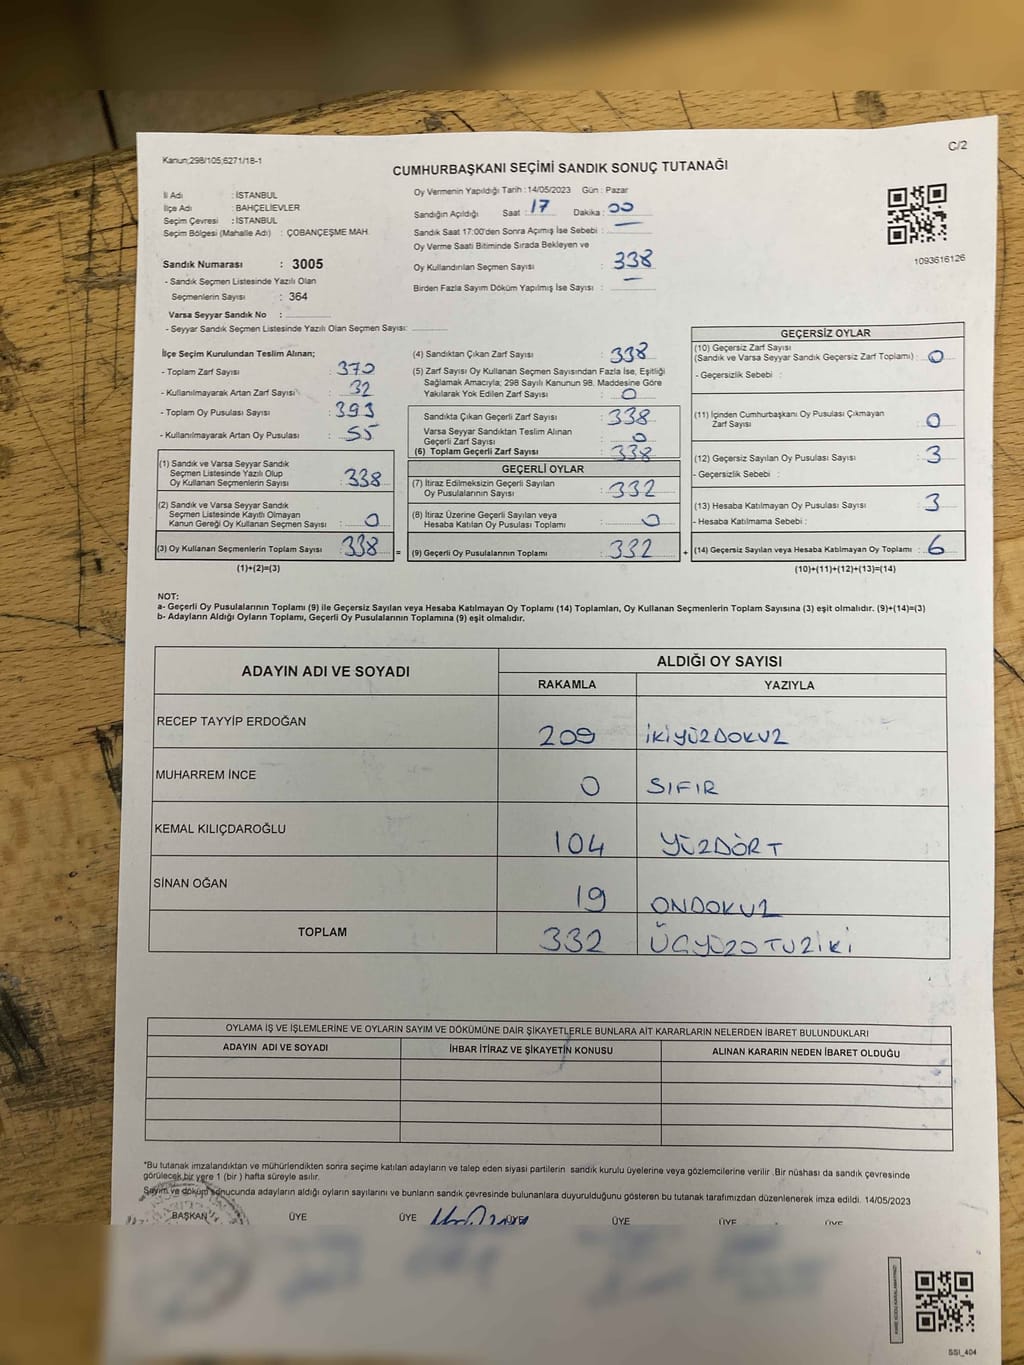 Kanun;298/105;6271/18-1
C/2
CUMHURBAŞKANI SEÇİMİ SANDIK SONUÇ TUTANAĞI
İl Adı : İSTANBUL
İlçe Adı : BAHÇELİEVLER
Seçim Çevresi : İSTANBUL
Seçim Bölgesi (Mahalle Adı) : ÇOBANÇEŞME MAH.
Sandık Numarası : 3005
- Sandık Seçmen Listesinde Yazılı Olan
Seçmenlerin Sayısı : 364
Varsa Seyyar Sandık No :
- Seyyar Sandık Seçmen Listesinde Yazılı Olan Seçmen Sayısı:
Oy Vermenin Yapıldığı Tarih : 14/05/2023 Gün : Pazar
Sandığın Açıldığı Saat : 17 Dakika : 00
Sandık Saat 17:00'den Sonra Açımış İse Sebebi :
Oy Verme Saati Bitiminde Sırada Bekleyen ve
Oy Kullandırılan Seçmen Sayısı : 338
Birden Fazla Sayım Döküm Yapılmış İse Sayısı :
1093616126
İlçe Seçim Kurulundan Teslim Alınan;
- Toplam Zarf Sayısı : 370
- Kullanılmayarak Artan Zarf Sayısı : 32
- Toplam Oy Pusulası Sayısı : 393
- Kullanılmayarak Artan Oy Pusulası : 55
(1) Sandık ve Varsa Seyyar Sandık
Seçmen Listesinde Yazılı Olup
Oy Kullanan Seçmenlerin Sayısı : 338
(2) Sandık ve Varsa Seyyar Sandık
Seçmen Listesinde Kayıtlı Olmayan
Kanun Gereği Oy Kullanan Seçmen Sayısı : 0
(3) Oy Kullanan Seçmenlerin Toplam Sayısı : 338 =
(1)+(2)=(3)
(4) Sandıktan Çıkan Zarf Sayısı : 338
(5) Zarf Sayısı Oy Kullanan Seçmen Sayısından Fazla İse, Eşitliği
Sağlamak Amacıyla; 298 Sayılı Kanunun 98. Maddesine Göre
Yakılarak Yok Edilen Zarf Sayısı : 0
Sandıkta Çıkan Geçerli Zarf Sayısı : 338
Varsa Seyyar Sandıktan Teslim Alınan
Geçerli Zarf Sayısı : 0
(6) Toplam Geçerli Zarf Sayısı : 338
GEÇERLİ OYLAR
(7) İtiraz Edilmeksizin Geçerli Sayılan
Oy Pusulalarının Sayısı : 332
(8) İtiraz Üzerine Geçerli Sayılan veya
Hesaba Katılan Oy Pusulası Toplamı : 0
(9) Geçerli Oy Pusulalarının Toplamı : 332 +
GEÇERSİZ OYLAR
(10) Geçersiz Zarf Sayısı
(Sandık ve Varsa Seyyar Sandık Geçersiz Zarf Toplamı) : 0
- Geçersizlik Sebebi :
(11) İçinden Cumhurbaşkanı Oy Pusulası Çıkmayan
Zarf Sayısı : 0
(12) Geçersiz Sayılan Oy Pusulası Sayısı : 3
- Geçersizlik Sebebi :
(13) Hesaba Katılmayan Oy Pusulası Sayısı : 3
- Hesaba Katılmama Sebebi :
(14) Geçersiz Sayılan veya Hesaba Katılmayan Oy Toplamı : 6
(10)+(11)+(12)+(13)=(14)
NOT:
a- Geçerli Oy Pusulalarının Toplamı (9) ile Geçersiz Sayılan veya Hesaba Katılmayan Oy Toplamı (14) Toplamları, Oy Kullanan Seçmenlerin Toplam Sayısına (3) eşit olmalıdır. (9)+(14)=(3)
b- Adayların Aldığı Oyların Toplamı, Geçerli Oy Pusulalarının Toplamına (9) eşit olmalıdır.
ADAYIN ADI VE SOYADI ALDIĞI OY SAYISI
RAKAMLA YAZIYLA
RECEP TAYYİP ERDOĞAN 209 İKİYÜZDOKUZ
MUHARREM İNCE 0 SIFIR
KEMAL KILIÇDAROĞLU 104 YÜZDÖRT
SİNAN OĞAN 19 ONDOKUZ
TOPLAM 332 ÜÇYÜZOTUZİKİ
OYLAMA İŞ VE İŞLEMLERİNE VE OYLARIN SAYIM VE DÖKÜMÜNE DAİR ŞİKAYETLERLE BUNLARA AİT KARARLARIN NELERDEN İBARET BULUNDUKLARI
ADAYIN ADI VE SOYADI İHBAR İTİRAZ VE ŞİKAYETİN KONUSU ALINAN KARARIN NEDEN İBARET OLDUĞU
*Bu tutanak imzalandıktan ve mühürlendikten sonra seçime katılan adayların ve talep eden siyasi partilerin sandık kurulu üyelerine veya gözlemcilerine verilir .Bir nüshası da sandık çevresinde
görülecek bir yere 1 (bir ) hafta süreyle asılır.
Sayım ve döküm sonucunda adayların aldığı oyların sayılarını ve bunların sandık çevresinde bulunanlara duyurulduğunu gösteren bu tutanak tarafımızdan düzenlenerek imza edildi. 14/05/2023
BAŞKAN ÜYE ÜYE ÜYE ÜYE ÜYE ÜYE
SSI_404